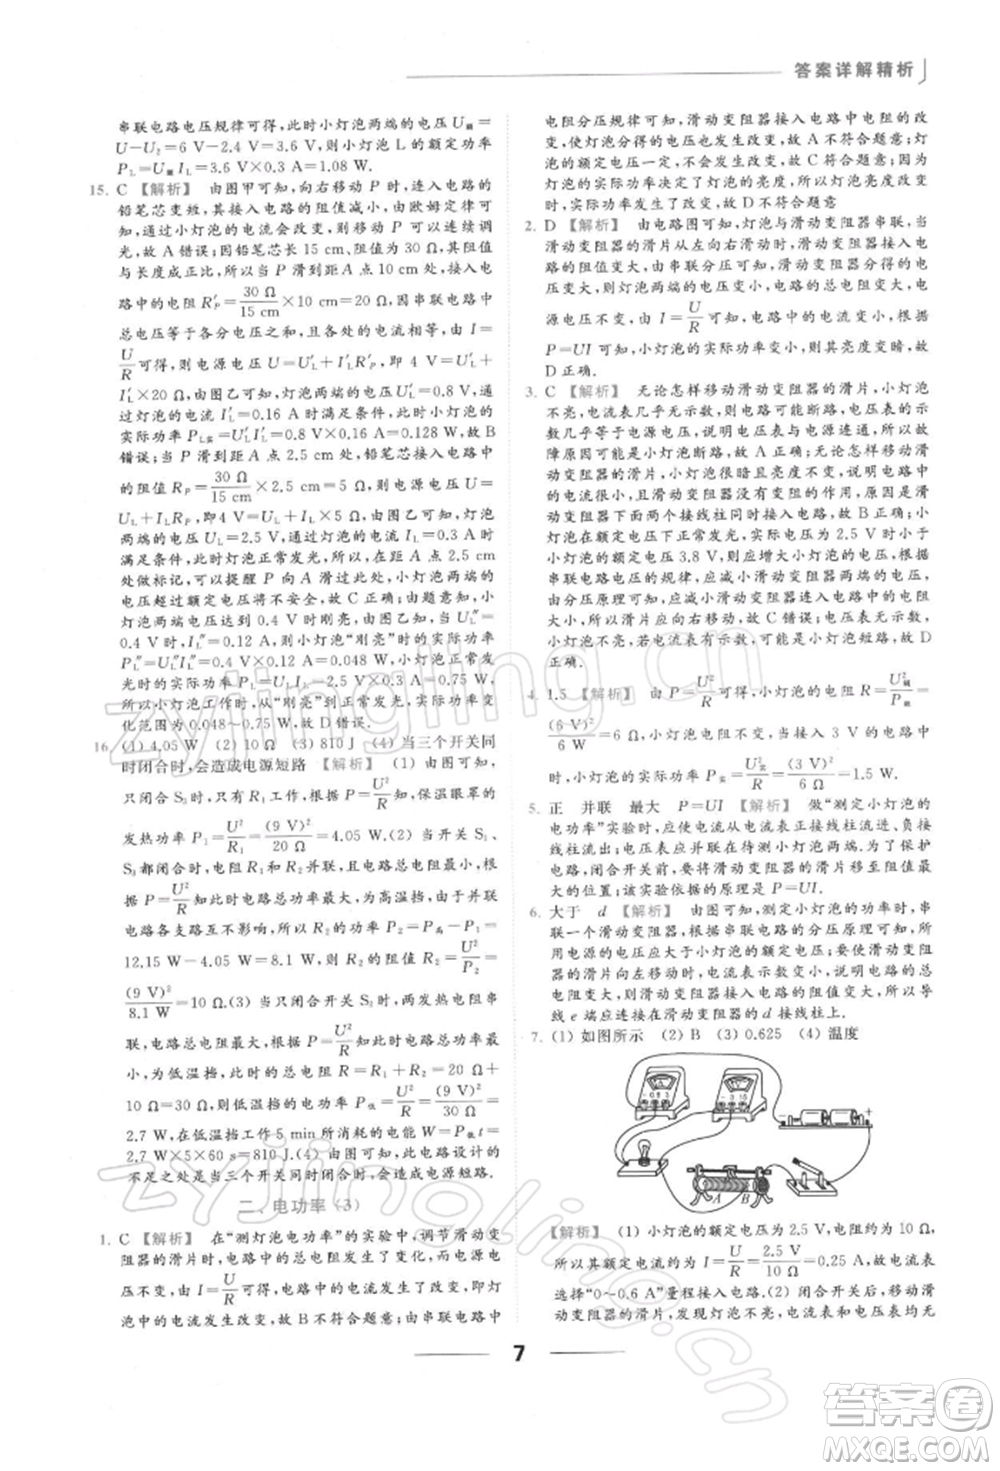 答案详解精析
串联电路电压规律可得，此时小灯泡两端的电压 U额=
U－U₂=6 V－2.4 V=3.6 V，则小灯泡 L 的额定功率
P_L=U额 I_L=3.6 V×0.3 A=1.08 W.
15. C 【解析】 由图甲可知，向右移动 P 时，连入电路的
铅笔芯变短，其接入电路的阻值减小，由欧姆定律可
知，电路的电流会改变，则灯泡的亮度会改变，不满足
条件，故 A 错误；因铅笔芯长 15 cm、阻值为 30 Ω 且
阻值均匀，所以当 P 滑到距 A 点 10 cm 处时，接入电
路中的电阻 R′_P=30 Ω/15 cm×10 cm=20 Ω，因串联电路中
总电压等于各分电压之和，且各处的电流相等，由 I=
U/R可得，则电源电压 U=U′_L+I′_LR′_P，即 4 V=U′_L+
I′_L×20 Ω，由图乙可知，灯泡两端的电压 U′_L=0.8 V，通
过灯泡的电流 I′_L=0.16 A 时满足条件，此时灯泡的实
际功率 P_L实=U′_LI′_L=0.8 V×0.16 A=0.128 W，故 B
错误；当 P 滑到距 A 点 2.5 cm 处时，铅笔芯接入电路
的阻值 R_P=30 Ω/15 cm×2.5 cm=5 Ω，则电源电压 U=
U_L+I_LR_P，即4 V=U_L+I_L×5 Ω，由图乙可知，灯泡
两端的电压 U_L=2.5 V，通过灯泡的电流 I_L=0.3 A 时
满足条件，此时灯泡正常发光，所以，在距 A 点 2.5 cm
处做标记，可以提醒 P 向 A 滑过此处时，灯泡两端电
压超过额定电压将不安全，故 C 正确；由题意知，小灯
泡两端电压达到 0.4 V 时刚亮，由图乙知，当 U″_L=
0.4 V 时，I″_L=0.12 A，则小灯泡“刚亮”时的实际功率
P″_L=U″_LI″_L=0.4 V×0.12 A=0.048 W，小灯泡正常发
光的功率 P_L=U_LI_L=2.5 V×0.3 A=0.75 W，
所以小灯泡工作时，从“刚亮”到正常发光的功率变
化范围为 0.048~0.75 W，故 D 错误.
16. (1) 4.05 W (2) 10 Ω (3) 810 J (4) 当三个开关同
时闭合时，会造成电源短路 【解析】 (1) 由图可知，
只闭合开关 S₃ 时，只有 R₁ 工作，根据 P=U²/R 可得，保温眼罩的
发热功率 P₁=U²/R₁=(9 V)²/20 Ω=4.05 W. (2) 当开关 S₁、
S₃都闭合时，电阻 R₁ 和 R₂ 并联，且电路总电阻最小，
根据 P=U²/R可知，此时总功率最大，为高温挡；因电路中
各支路互不影响，所以 R₂ 的功率 P₂=P高－P₁=
12.15 W－4.05 W=8.1 W，则 R₂ 的阻值 R₂=U²/P₂=
(9 V)²/8.1 W=10 Ω. (3) 当只闭合开关 S₂ 时，两发热电阻串
联，电路总电阻最大，由 P=U²/R可知，电路总功率最小，
处于低温挡，此时的总电阻 R=R₁+R₂=20 Ω+
10 Ω=30 Ω，则低温挡的功率 P低=U²/R=(9 V)²/30 Ω=
2.7 W，所以低温挡工作 5 min 所消耗的电能 W=P低t=
2.7 W×5×60 s=810 J. (4) 由图可知，此电路设计的
不足之处是当三个开关同时闭合时，会造成电源短路.
二、电功率 (3)
1. C 【解析】 在“测灯泡电功率”的实验中，调节滑动变
阻器的滑片时，电路中的总电阻发生了变化，而电源电
压不变，由 I=U/R可得，电路中的电流发生了改变，即灯
泡中的电流发生改变，故 B 不符合题意；由串联电路中
电阻分压规律可知，滑动变阻器接入电路的电阻改变，
则灯泡分担的电压也发生改变，故 A 不符合题意；灯
泡的额定电压一定，不会改变，故 C 符合题意；由于灯
泡的实际功率决定了灯泡的亮度，所以灯泡的亮度、灯
泡的实际功率发生了改变，故 D 不符合题意
2. D 【解析】 由电路图可知，灯泡与滑动变阻器串联，当
滑动变阻器的滑片从左向右滑动时，滑动变阻器接入
的阻值变大，由串联分压可知，滑动变阻器两端的电
压变大，则灯泡两端的电压变小；总电阻变大，
电源电压不变，由 I=U/R可知，电路中的电流变小，根据
P=UI 可知，小灯泡的实际功率变小，则其亮度变暗，故
D 正确.
3. C 【解析】 无论怎样移动滑动变阻器的滑片，小灯泡
不亮，电流表几乎无示数，则电路可能断路，电压表的示
数几乎等于电源电压，说明电压表与电源连通，所以
故障原因是小灯泡断路，故 A 正确；无论怎样移动滑
动变阻器的滑片，小灯泡很暗且亮度不变，说明电路中
的电流很小，滑动变阻器没有起到变阻的作用，应是滑
动变阻器下面两个接线柱同时接入电路了，故 B 正
确；小灯泡能够发光，但电压表示数为 2.5 V时小于小
小灯泡的额定电压 3.8 V，则应增大小灯泡两端电压，根据
串联电路电压的规律，应减小滑动变阻器两端的电压，
应减小滑动变阻器接入电路的阻值，由题图知滑动变
阻器的滑片应向右移动，故 C 错误；电压表无示数，
小灯泡不亮，若电流表有示数，则小灯泡短路，故 D
正确.
4. 1.5 【解析】 由 P=U²/R可得，小灯泡的电阻 R=U²额/P额=
(6 V)²/6 W=6 Ω，将小灯泡接在电源电压为 3 V 的电路中
时，小灯泡的实际功率 P实=U²实/R=(3 V)²/6 Ω=1.5 W.
5. 正 并联 最大 P=UI 【解析】 做“测定小灯泡的
电功率”实验时，应使电流从电流表正接线柱流进、负接
线柱流出；电压表应并联在待测小灯泡两端.为了保护
电路，闭合开关前，要将滑动变阻器的滑片滑至阻值最
大的位置；该实验依据的原理是 P=UI.
6. 大于 d 【解析】 由图可知，测定小灯泡的功率时，串
联一个滑动变阻器，根据串联电路电压的规律可知，所
用电源的电压应大于小灯泡的额定电压；要求滑动变阻
器的滑片向左移动时，电流表和电压表示数均变
小，说明滑动变阻器接入电路的阻值变大，所以导
线 e 端应连接在滑动变阻器的 d 接线柱上.
7. (1) 如图所示 (2) B (3) 0.625 (4) 温度
A B
【解析】 (1) 小灯泡的额定电压为 2.5 V，电阻约为 10 Ω，
所以其额定电流约为 I=U/R=2.5 V/10 Ω=0.25 A，故电流表
选择“0~0.6 A”量程接入电路. (2) 闭合开关后，移动滑
动变阻器的滑片，发现灯泡不亮，电流表和电压表均无
7
zyjingling.cn
zyjingling.cn
答案圈
MXQE.COM